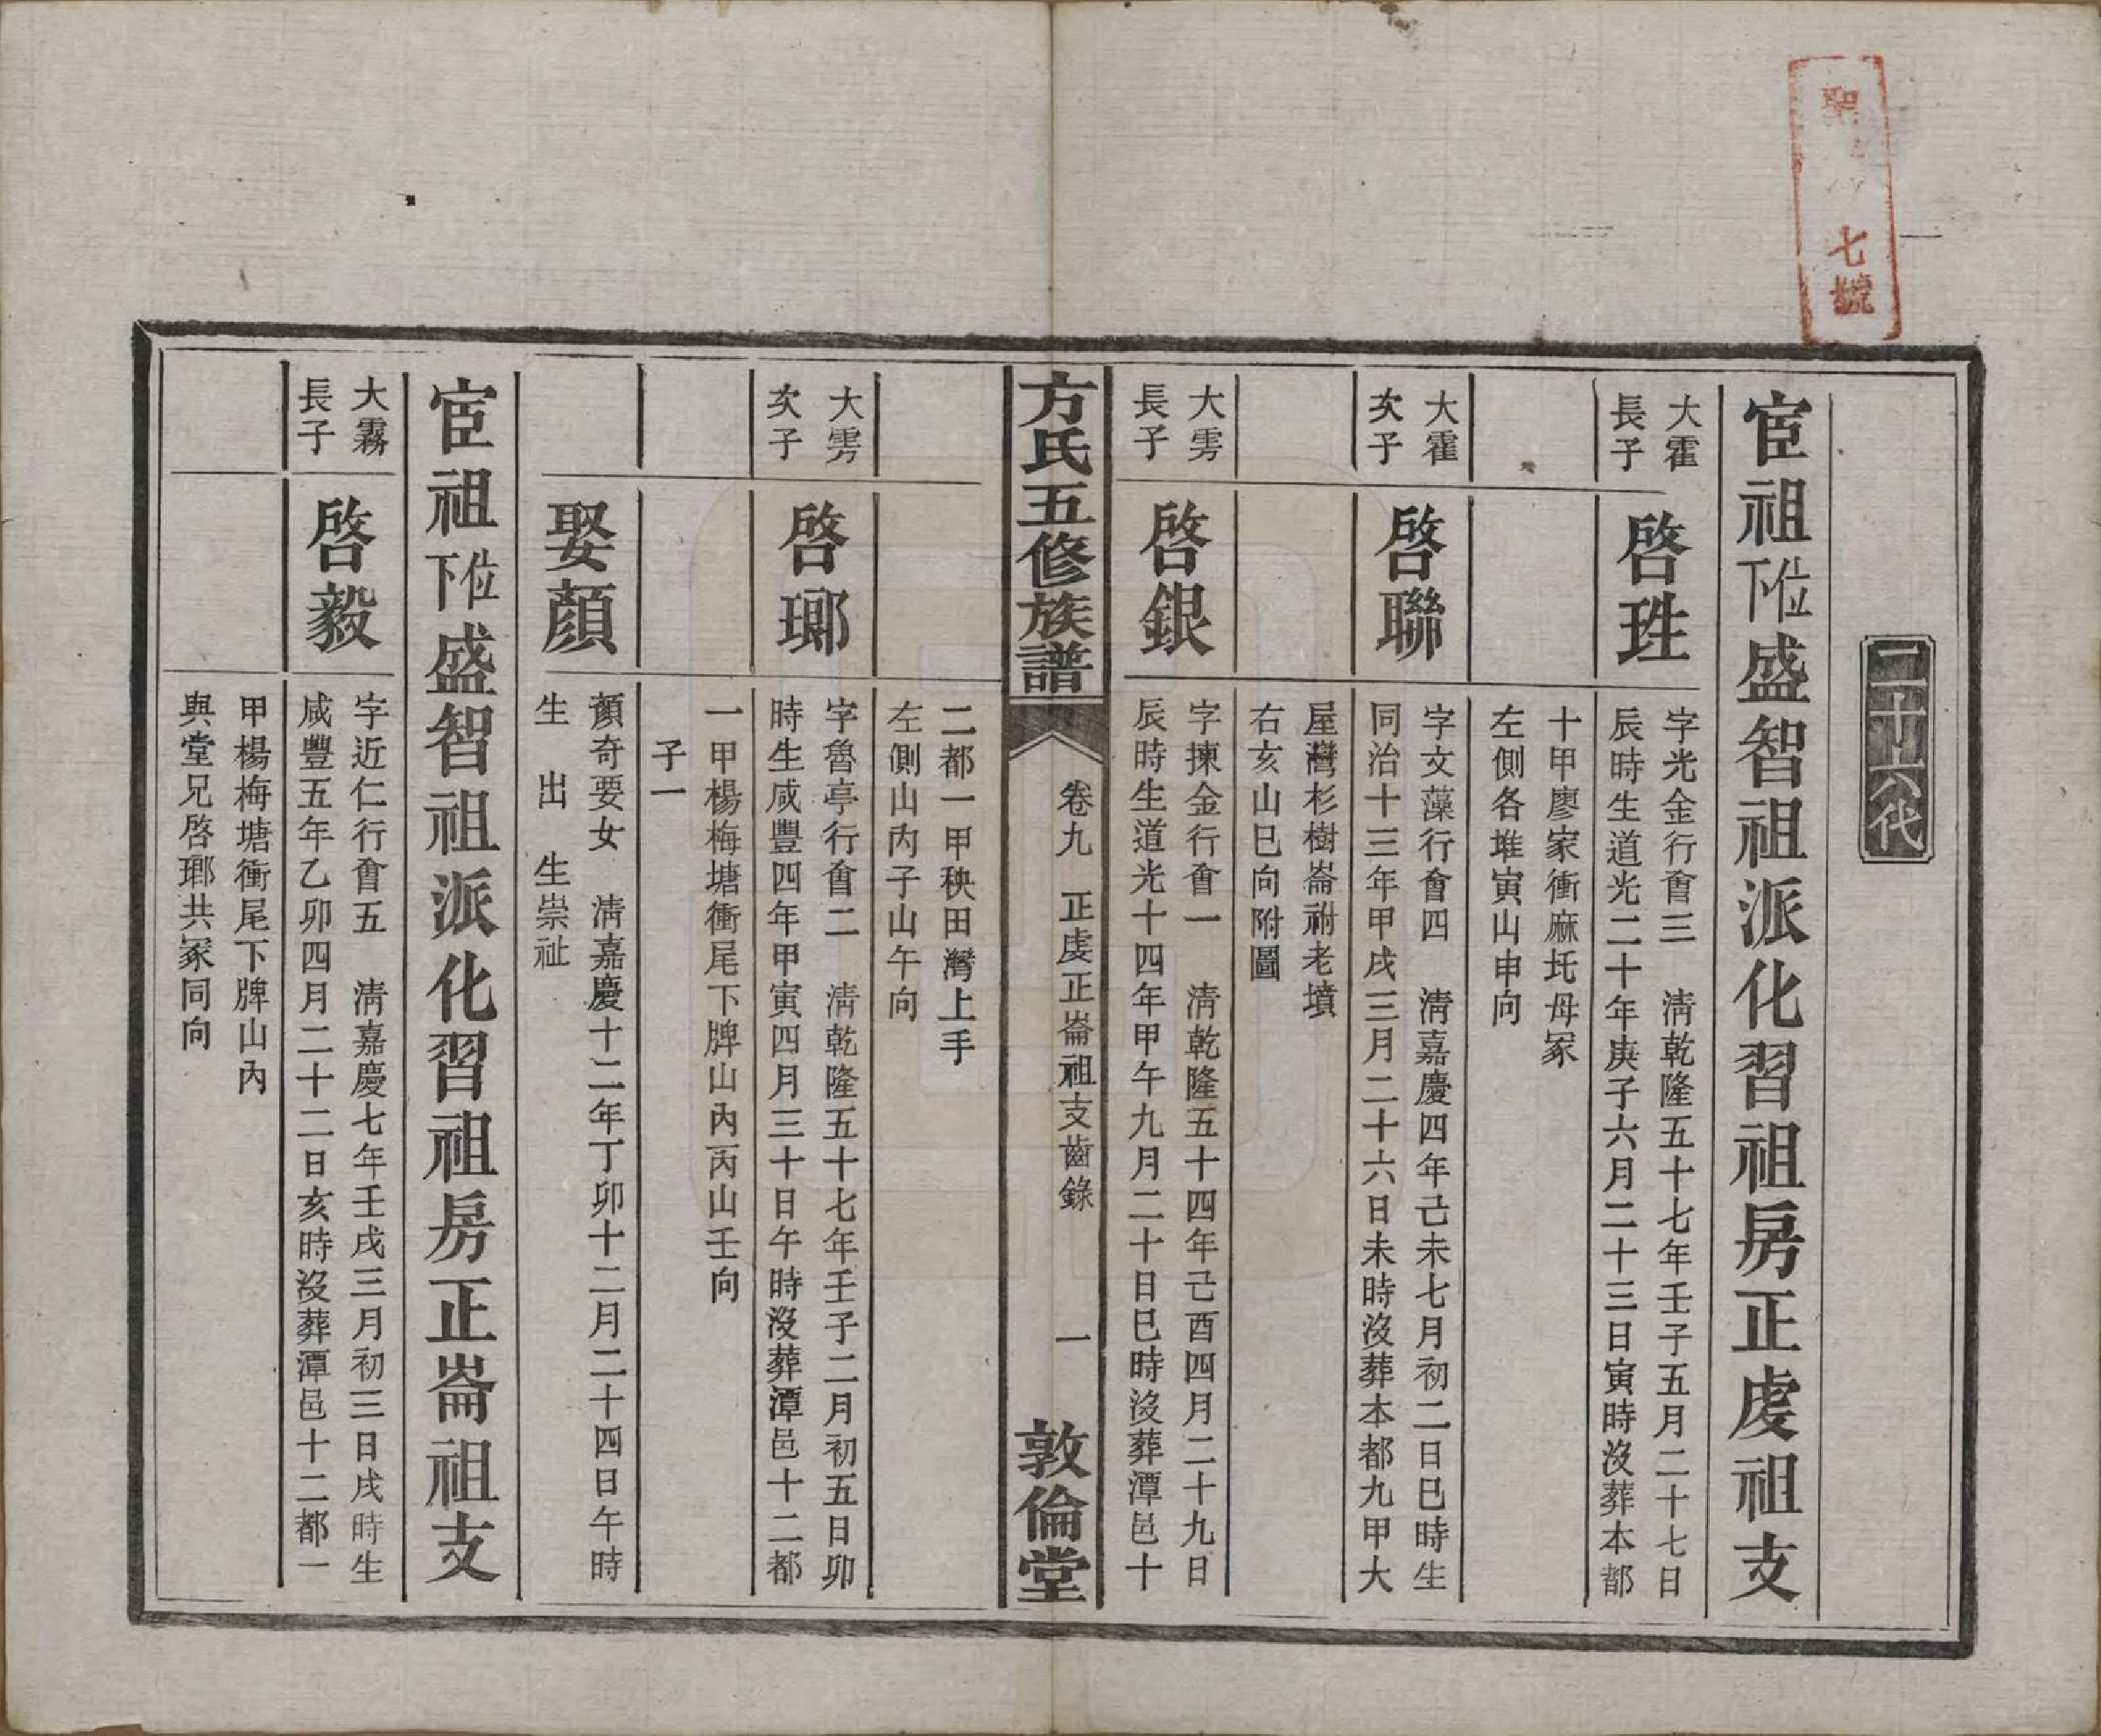 七號
二十六代
宦祖位下盛智祖派化習祖房正虔祖支
大霍
長子
啓珄
字光金行會三 清乾隆五十七年壬子五月二十七日
辰時生道光二十年庚子六月二十三日寅時沒葬本都
十甲廖家衝麻圫母冢
左側各堆寅山申向
大霍
次子
啓聯
字文藻行會四 清嘉慶四年己未七月初二日巳時生
同治十三年甲戌三月二十六日未時沒葬本都九甲大
屋灣杉樹崙祔老墳
右亥山巳向附圖
大雱
長子
啓銀
字揀金行會一 清乾隆五十四年己酉四月二十九日
辰時生道光十四年甲午九月二十日巳時沒葬潭邑十
方氏五修族譜 卷九 正虔正崙祖支齒錄 一 敦倫堂
二都一甲秧田灣上手
左側山內子山午向
大雱
次子
啓瑯
字魯亭行會二 清乾隆五十七年壬子二月初五日卯
時生咸豐四年甲寅四月三十日午時沒葬潭邑十二都
一甲楊梅塘衝尾下牌山內丙山壬向
子一
娶顏
顏奇要女 清嘉慶十二年丁卯十二月二十四日午時
生 出 生崇祉
宦祖位下盛智祖派化習祖房正崙祖支
大霧
長子
啓毅
字近仁行會五 清嘉慶七年壬戌三月初三日戌時生
咸豐五年乙卯四月二十二日亥時沒葬潭邑十二都一
甲楊梅塘衝尾下牌山內
與堂兄啓瑯共冢同向